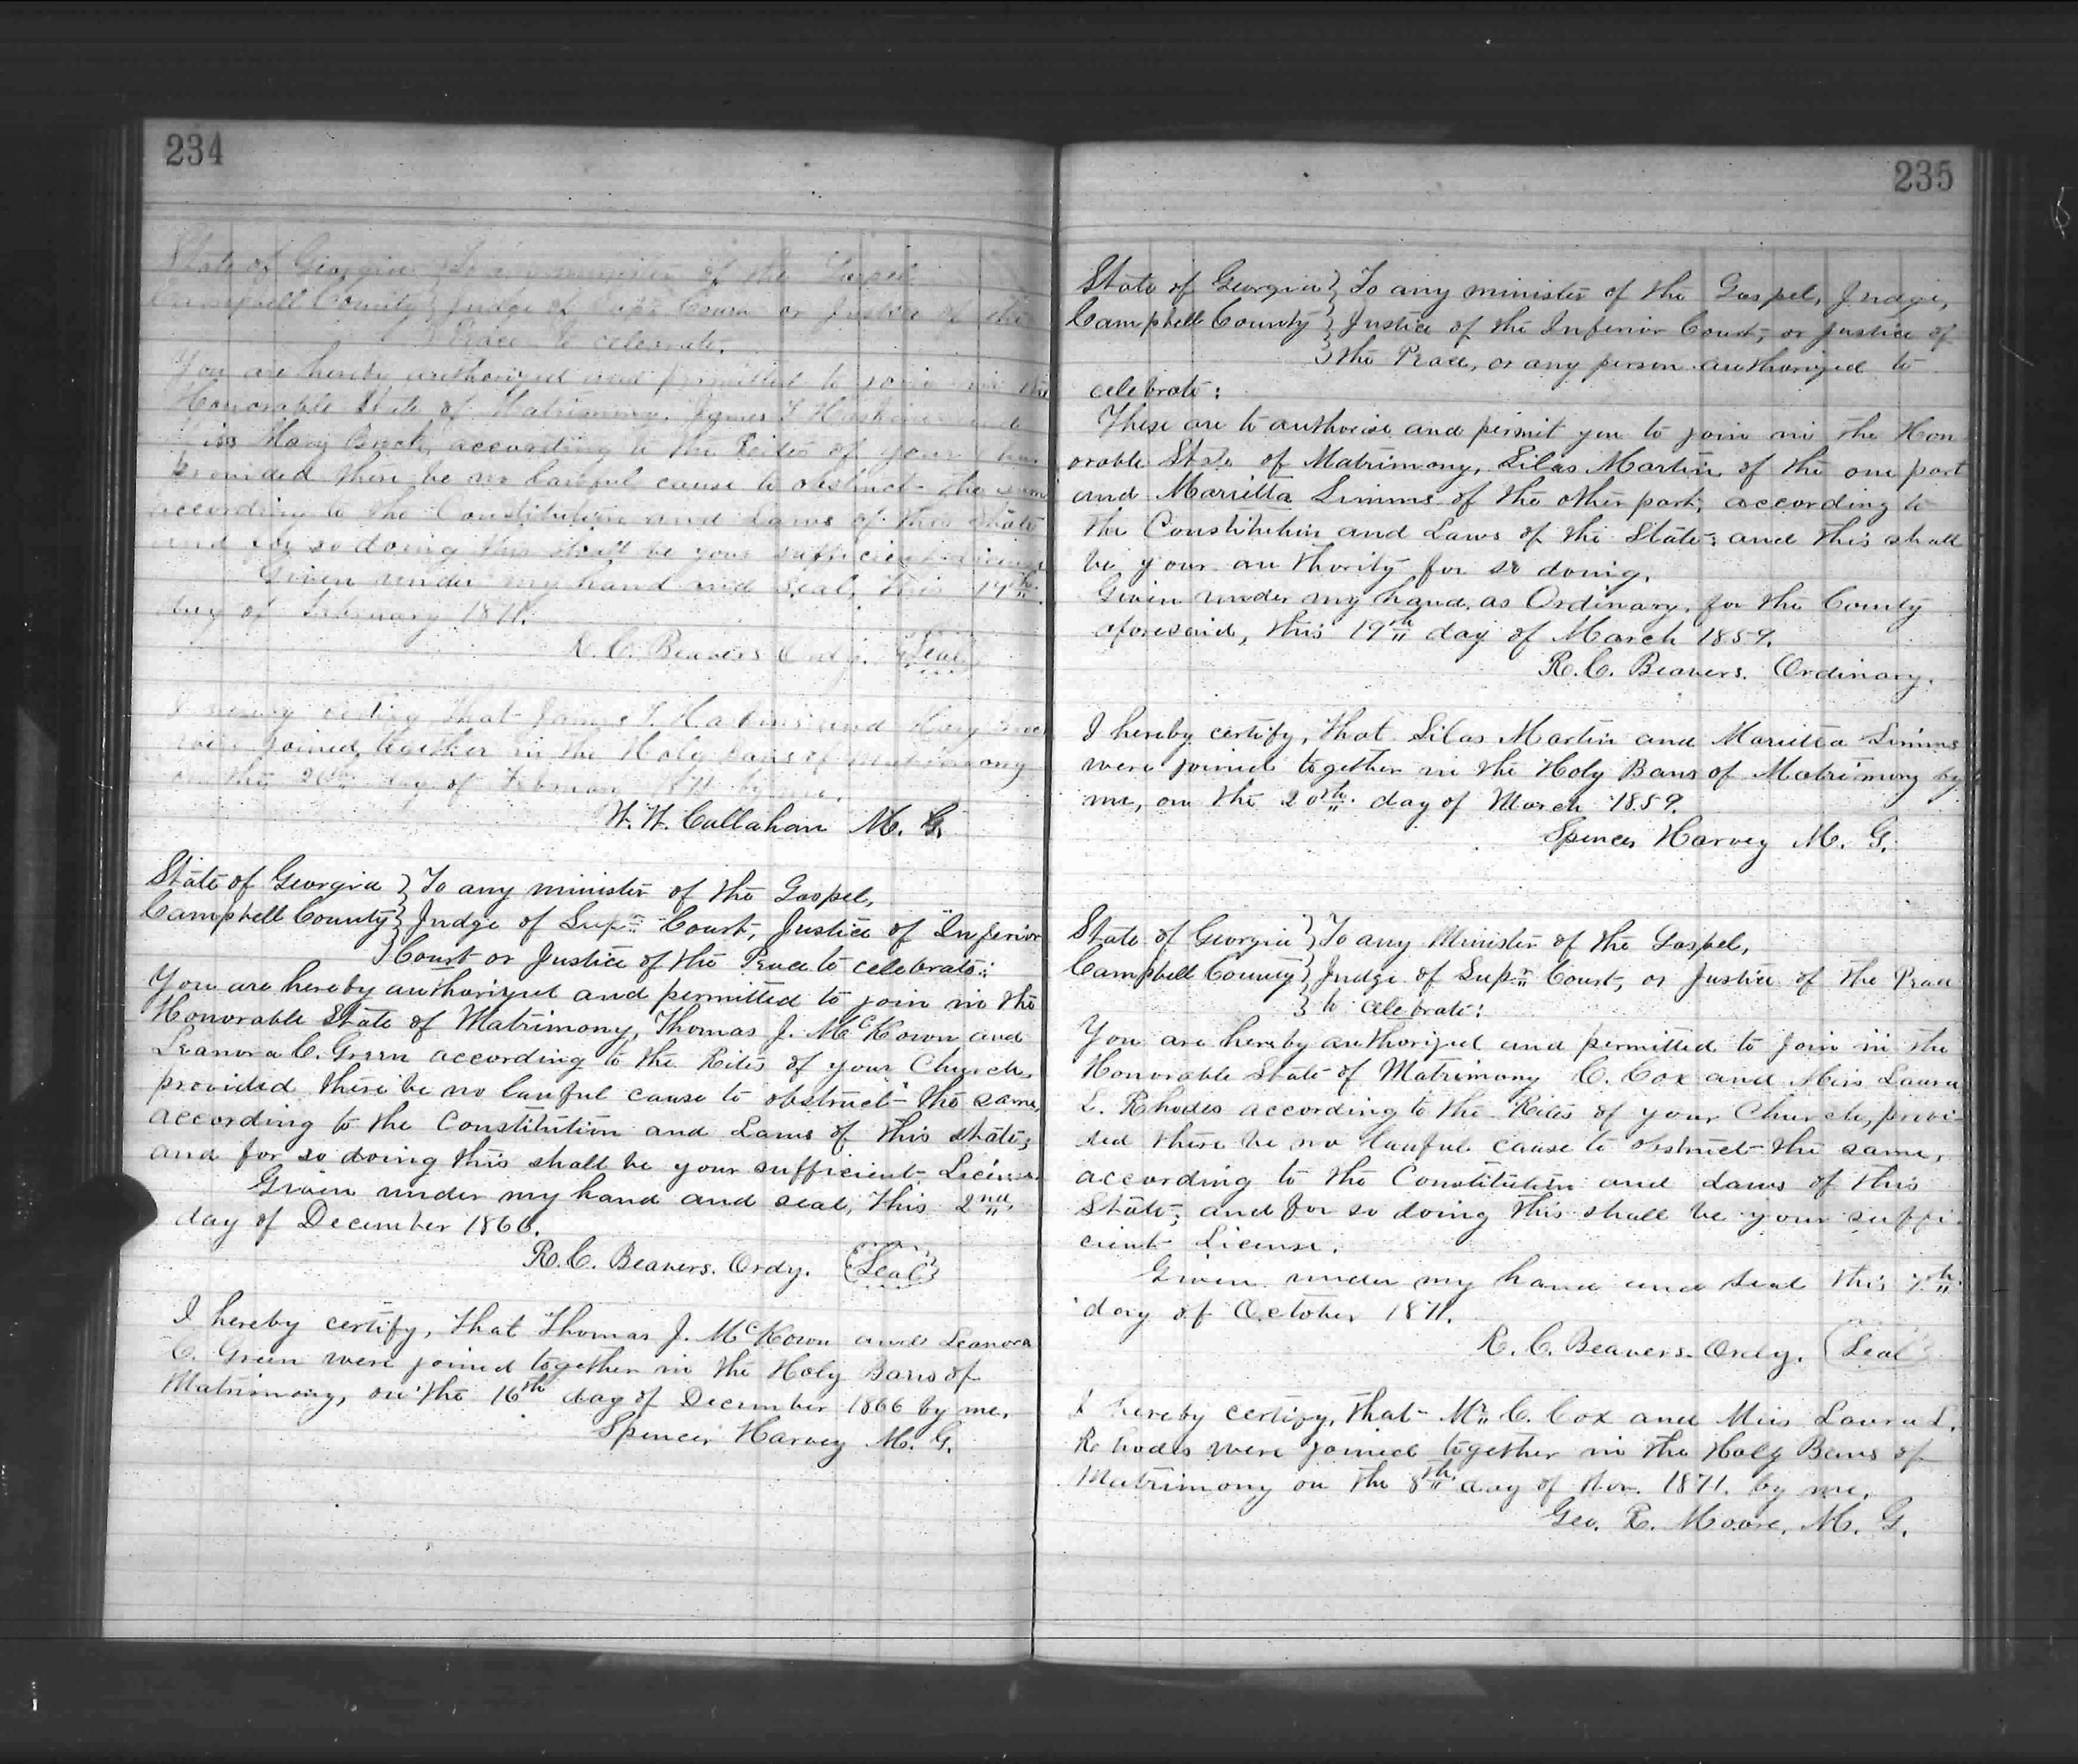 234
State of Georgia } To any minister of the Gospel
Campbell County } Judge of Supr Court or Justice of the
Peace to celebrate.
You are hereby authorized and permitted to join in the
Honorable State of Matrimony, James T
Miss Mary according to the Rites of your
provided there be no lawful cause to obstruct the same
according to the Constitution and Laws of this State
and for so doing this shall be your sufficient License
Given under my hand and seal, this
day of February 1871.
R. C. Beavers Ordy. (Seal)
I hereby certify that James T. and Mary
were joined together in the Holy Bans of Matrimony
on the 26th day of February 1871 by me,
W. W. Callahan M. G.
State of Georgia } To any minister of the Gospel,
Campbell County } Judge of Supr Court, Justice of Inferior
} Court or Justice of the Peace to celebrate:
You are hereby authorized and permitted to join in the
Honorable State of Matrimony, Thomas J. McKown and
Leanora C. Green according to the Rites of your Church,
provided there be no lawful cause to obstruct the same,
according to the Constitution and Laws of this State;
and for so doing this shall be your sufficient License
Given under my hand and seal, this 2nd
day of December 1866.
R. C. Beavers. Ordy. (Seal)
I hereby certify, that Thomas J. McKown and Leanora
C. Green were joined together in the Holy Bans of
Matrimony, on the 16th day of December 1866 by me,
Spencer Harvey M. G.
235
State of Georgia } To any minister of the Gospel, Judge,
Campbell County } Justice of the Inferior Court, or justice of
} the Peace, or any person authorized to
celebrate:
These are to authorise and permit you to join in the Hon
orable State of Matrimony, Silas Martin of the one part
and Marietta Simms of the other part, according to
the Constitution and Laws of the State; and this shall
be your authority for so doing.
Given under my hand, as Ordinary, for the County
aforesaid, this 19th day of March 1859.
R. C. Beavers. Ordinary.
I hereby certify, that Silas Martin and Marietta Simms
were joined together in the Holy Bans of Matrimony by
me, on the 20th day of March 1859.
Spencer Harvey M. G.
State of Georgia } To any Minister of the Gospel,
Campbell County } Judge of Supr Court, or Justice of the Peace
} to celebrate:
You are hereby authorized and permitted to join in the
Honorable State of Matrimony C. Cox and Miss Laura
L. Rhodes according to the Rites of your Church, provi-
ded there be no lawful cause to obstruct the same,
according to the Constitution and Laws of this
State; and for so doing this shall be your suffi-
cient License.
Given under my hand and seal this 7th
day of October 1871.
R. C. Beavers. Ordy. (Seal)
I hereby certify, that Mr C. Cox and Miss Laura L.
Rhodes were joined together in the Holy Bans of
Matrimony on the 8th day of Nov. 1871. by me,
Geo. R. Moore, M. G.